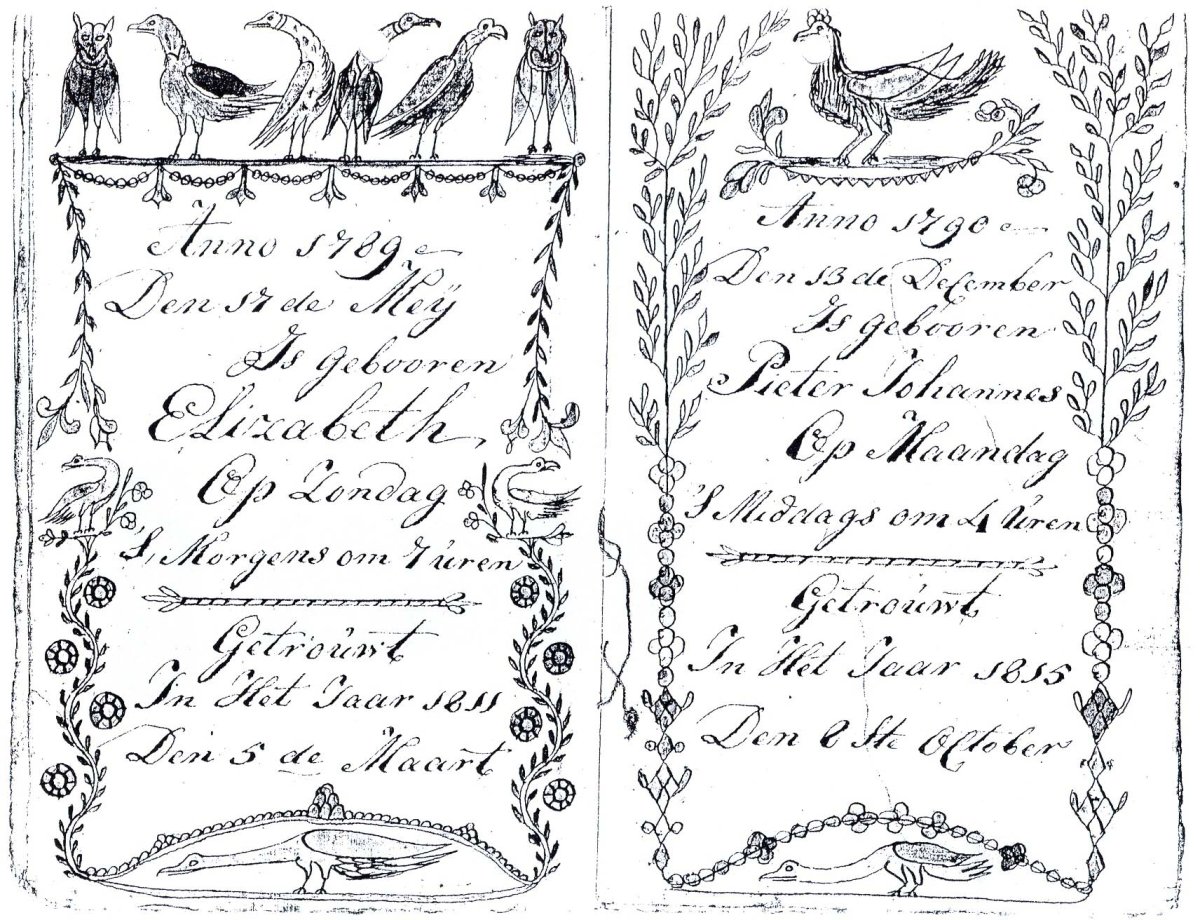 Anno 1789
Den 17 de Meÿ
Is gebooren
Elizabeth,
Op Zondag
'S, Morgens om 7 úren
Getroúwt
In Het Jaar 1811
Den 5 de Maart
Anno 1790
Den 13 de December
Is gebooren
Pieter Johannes
Op Maandag
'S Middags om 4 Úren
Getroúwt
In Het Jaar 1815
Den 8 Ste October